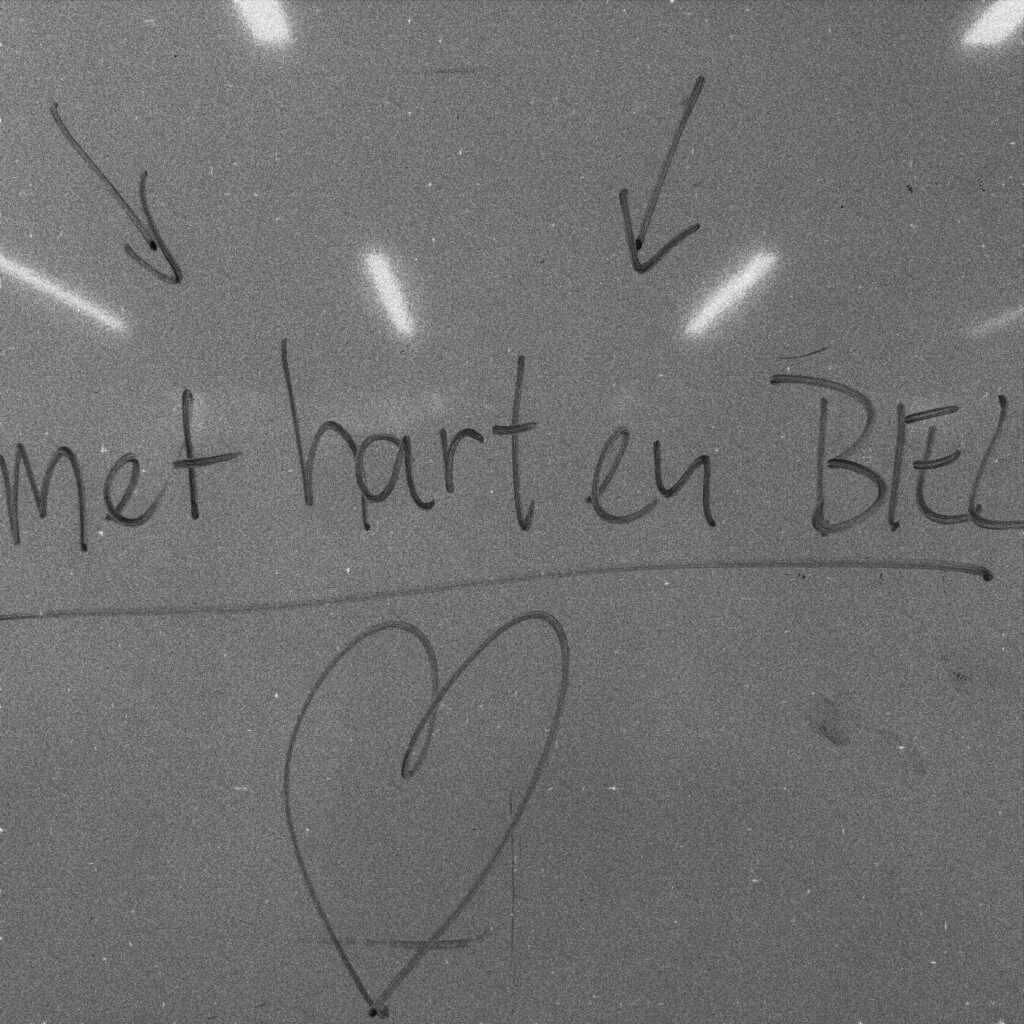 met hart en BIEL